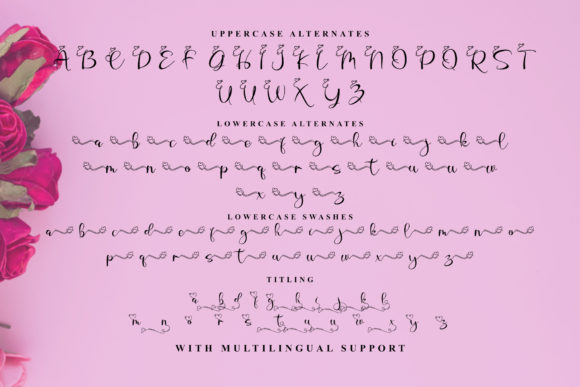 UPPERCASE ALTERNATES
A B C D E F G H I J K L M N O P Q R S T
U V W X Y Z
LOWERCASE ALTERNATES
a b c d e f g h i j k l
m n o p q r s t u v w
x y z
LOWERCASE SWASHES
a b c d e f g h i j k l m n o
p q r s t u v w x y z
TITLING
a b d f g h i j k k
m n o r s t u v w x y z
WITH MULTILINGUAL SUPPORT